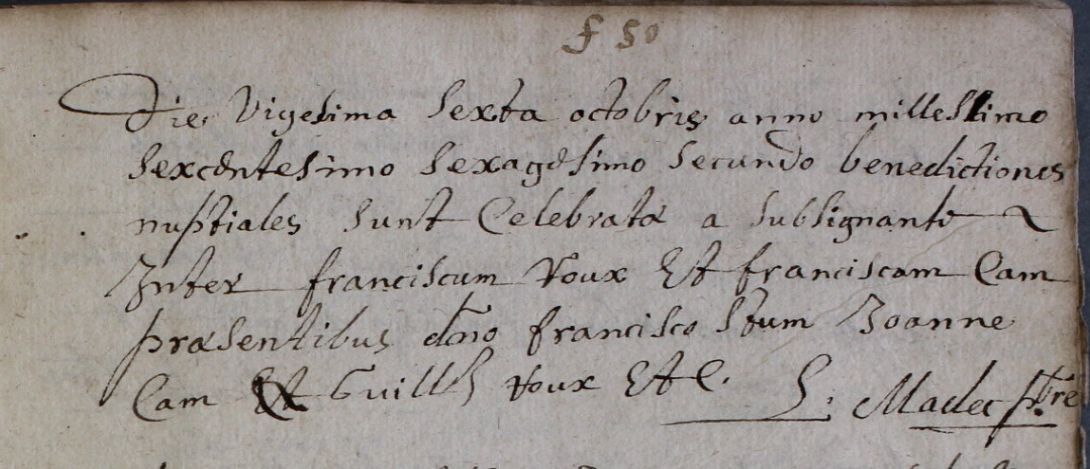 f 50
Die Vigesima Sexta octobris anno millesimo
Sexcentesimo Sexagesimo Secundo benedictiones
nuptiales sunt Celebratæ a subsignante
Inter franciscum Roux Et franciscam Cam
præsentibus dno francisco Joanne
Cam Et Guill Roux Et C. Madec ptre